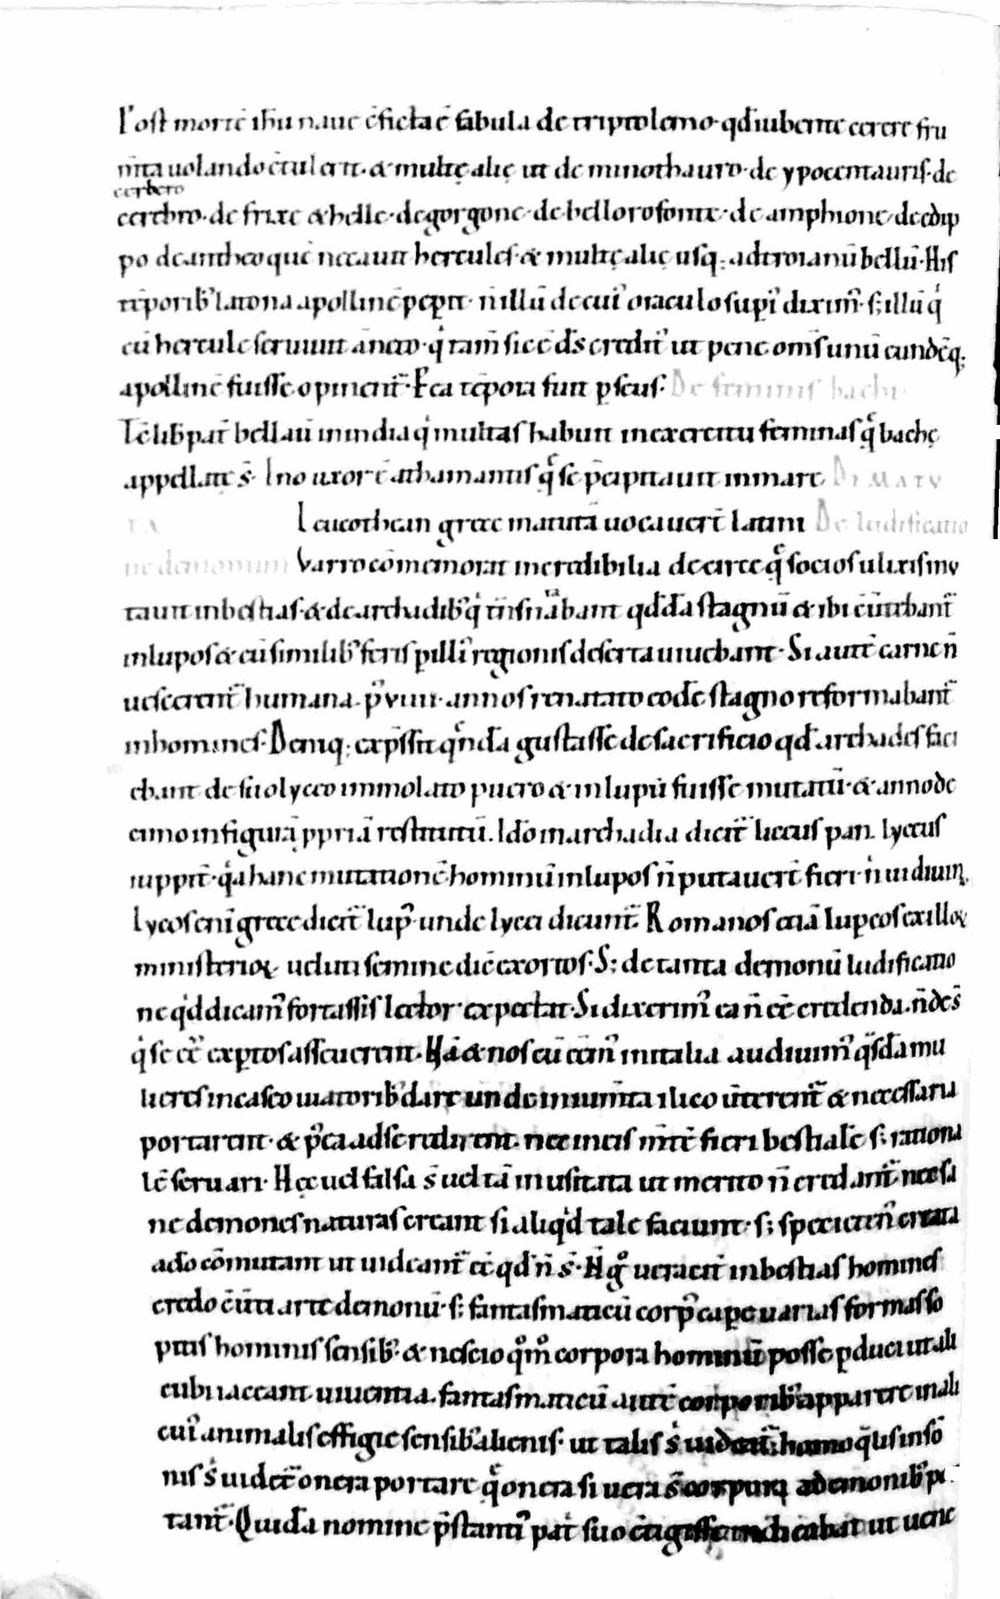 Post mortē ih̄u naue ɔ̄ficta ē fabula de triptolemo· qd̄ iubente cerere fru
m̄ta uolando ɔ̄tulerit· & multę alię ut de minothauro· de ypocentauris· de
cerbero
cerebro· de frixe & helle· de gorgone· de bellorofonte· de amphione· de edip
po de antheo quē necauit hercules· & multę alię usq; ad troianū bellū· His
tēporib; latona apollinē peꝑit· n̄ illū de cui᾽ oraculo supi᾽ dixim᾽· s; illū q̇
cū hercule seruiuit ām̄eto· q̇ tam̄ sic ē ds̄ credit᾽ ut pene om̄s unū eundēq;
apollinē fuisse opinent᾽· P᾽ ea tēpora fuit ꝑseus· De feminis bachi·
Tc̄ lib̄ pat̄ bellauit in india q̇ multas habuit in exercitu feminas q̄ bachę
appellate s̄· Ino uxor ē athamantis q̄ se p̄cipitauit in mare· De MATV
TA Leucothean grece matutā uocauert̄ latini De ludificatio
ne demonum Varro cōmemorat incredibilia de circe q̄ socios ulixis mu
tauit in bestias· & de archadib; q̇ tn̄snabant qd̄dā stagnū & ibi ɔ̄u᾽tebant᾽
in lupos & cū similib; feris ꝑ illi᾽ regionis deserta uiuebant· Si autē carne n̄
uescerent᾽ humana· p᾽ viiii· annos renatato eodē stagno reformabant᾽
in homines· Deniq; exp̄ssit q̄ndā gustasse de sacrificio qd̄ archades faci
ebant deo suo lyceo immolato puero & in lupū fuisse mutatū· & anno de
cimo in figurā ꝓpriā restitutū. Idō in archadia dicit᾽ liceus pan. lyceus
iuppit̄· qa hanc mutationē hominū in lupos n̄ putauert̄ fieri n̄ ui diuin̄.
Lycos eni᾽ grece dicit᾽ lup᾽ unde lycei dicunt᾽. Romanos etiā luꝑcos ex illoꝝ
ministerioꝝ ueluti semine dic̄ exortos· S; de tanta demonū ludificatio
ne qd̄ dicam᾽ fortassis lector expectat· Si dixerim᾽ ea n̄ eē credenda· n̄ des̄
q̇ se ee᾽ exꝑtos asseuerent· Nā & nos cū eēm᾽ in italia audiuim᾽ qs̄dā mu
lieres in caseo uiatorib; dare unde in ium̄ta ilico u᾽terent᾽ & necessaria
portarent· & p᾽ ea ad se redirent· nec in eis m̄tē fieri bestialē s; rationa
lē seruari· Hęc uel falsa s̄ uel tā inusitata ut merito n̄ credant᾽· nec sa
ne demones naturas creant si aliqd̄ tale faciunt· s; speciet᾽ n̄ creata
a do cōmutant ut uideant᾽ eē qd̄ n̄ s̄· N̄ g᾽ ueracit̄ in bestias homines
credo ɔ̄u᾽ti arte demonū· s; fantasmaticū corp᾽ cape uarias formas so
pitis hominis sensib;· & nescio q᾽m᾽ corpora hominū posse ꝓduci ut ali
cubi iaceant uiuentia. fantasmaticū autē corporib; apparere in ali
cui᾽ animalis effigie sensib; alienis· ut talis s᾽ uideat᾽ homo q̄lis in sō
nis s᾽ uidet᾽ onera portare q̄ onera si uera s̄ corpora a demonib; por
tant᾽· Quidā nomine p̄stanti᾽ pat̄ suo ɔ̄tigisse indicabat ut uene